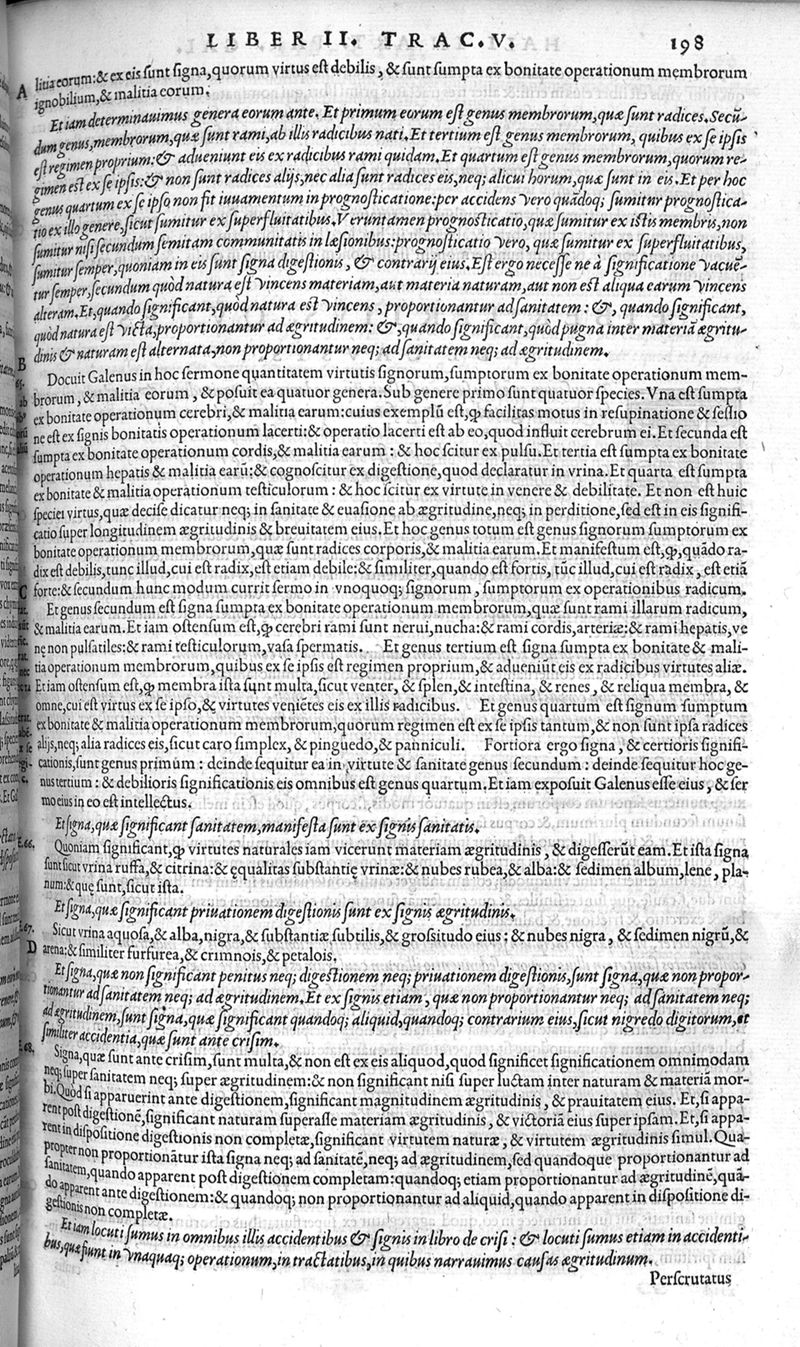 LIBER II. TRAC. V. 198
A
litia eorum: & ex eis sunt signa, quorum virtus est debilis, & sunt sumpta ex bonitate operationum membrorum
ignobilium, & malitia eorum.
Et iam determinauimus genera eorum ante. Et primum eorum est genus membrorum, quæ sunt radices. Secũ-
dum genus, membrorum, quæ sunt rami, ab illis radicibus nati. Et tertium est genus membrorum, quibus ex se ipsis
est regimen proprium: & adueniunt eis ex radicibus rami quidam. Et quartum est genus membrorum, quorum re-
gimen est ex se ipsis: & non sunt radices alijs, nec alia sunt radices eis, neq; alicui horum, quæ sunt in eis. Et per hoc
genus quartum ex se ipso non fit iuuamentum in prognosticatione: per accidens vero quãdoq; sumitur prognostica-
tio ex illo genere, sicut sumitur ex superfluitatibus. Veruntamen prognosticatio, quæ sumitur ex istis membris, non
sumitur nisi secundum semitam communitatis in læsionibus: prognosticatio vero, quæ sumitur ex superfluitatibus,
sumitur semper, quoniam in eis sunt signa digestionis, & contrarij eius. Est ergo necesse ne à significatione vacuẽ-
tur semper, secundum quòd natura est vincens materiam, aut materia naturam, aut non est aliqua earum vincens
alteram. Et, quando significant, quòd natura est vincens, proportionantur ad sanitatem: &, quando significant,
quòd natura est victa, proportionantur ad ægritudinem: &, quando significant, quòd pugna inter materiã ægritu-
dinis & naturam est alternata, non proportionantur neq; ad sanitatem neq; ad ægritudinem.
B
Docuit Galenus in hoc sermone quantitatem virtutis signorum, sumptorum ex bonitate operationum mem-
brorum, & malitia eorum, & posuit ea quatuor genera. Sub genere primo sunt quatuor species. Vna est sumpta
ex bonitate operationum cerebri, & malitia earum: cuius exemplũ est, ꝙ facilitas motus in resupinatione & sessio
ne est ex signis bonitatis operationum lacerti: & operatio lacerti est ab eo, quod influit cerebrum ei. Et secunda est
sumpta ex bonitate operationum cordis, & malitia earum: & hoc scitur ex pulsu. Et tertia est sumpta ex bonitate
operationum hepatis & malitia earũ: & cognoscitur ex digestione, quod declaratur in vrina. Et quarta est sumpta
ex bonitate & malitia operationum testiculorum: & hoc scitur ex virtute in venere & debilitate. Et non est huic
speciei virtus, quæ decise dicatur neq; in sanitate & euasione ab ægritudine, neq; in perditione, sed est in eis signifi-
catio super longitudinem ægritudinis & breuitatem eius. Et hoc genus totum est genus signorum sumptorum ex
bonitate operationum membrorum, quæ sunt radices corporis, & malitia earum. Et manifestum est, ꝙ, quãdo ra-
dix est debilis, tunc illud, cui est radix, est etiam debile: & similiter, quando est fortis, tũc illud, cui est radix, est etiã
C
forte: & secundum hunc modum currit sermo in vnoquoq; signorum, sumptorum ex operationibus radicum.
Et genus secundum est signa sumpta ex bonitate operationum membrorum, quæ sunt rami illarum radicum,
& malitia earum. Et iam ostensum est, ꝙ cerebri rami sunt nerui, nucha: & rami cordis, arteriæ: & rami hepatis, ve
nę non pulsatiles: & rami testiculorum, vasa spermatis. Et genus tertium est signa sumpta ex bonitate & mali-
tia operationum membrorum, quibus ex se ipsis est regimen proprium, & adueniũt eis ex radicibus virtutes aliæ.
Et iam ostensum est, ꝙ membra ista sunt multa, sicut venter, & splen, & intestina, & renes, & reliqua membra, &
omne, cui est virtus ex se ipso, & virtutes veniẽtes eis ex illis radicibus. Et genus quartum est signum sumptum
ex bonitate & malitia operationum membrorum, quorum regimen est ex se ipsis tantum, & non sunt ipsa radices
alijs, neq; alia radices eis, sicut caro simplex, & pinguedo, & panniculi. Fortiora ergo signa, & certioris signifi-
cationis, sunt genus primum: deinde sequitur ea in virtute & sanitate genus secundum: deinde sequitur hoc ge-
nus tertium: & debilioris significationis eis omnibus est genus quartum. Et iam exposuit Galenus esse eius, & ser
mo eius in eo est intellectus.
Et signa, quæ significant sanitatem, manifesta sunt ex signis sanitatis.
t.66.
Quoniam significant, ꝙ virtutes naturales iam vicerunt materiam ægritudinis, & digesserũt eam. Et ista signa
sunt sicut vrina ruffa, & citrina: & ęqualitas substantię vrinæ: & nubes rubea, & alba: & sedimen album, lene, pla-
num: & quę sunt, sicut ista.
Et signa, quæ significant priuationem digestionis sunt ex signis ægritudinis.
t.67.
Sicut vrina aquosa, & alba, nigra, & substantiæ subtilis, & grossitudo eius: & nubes nigra, & sedimen nigrũ, &
D
arena: & similiter furfurea, & crimnois, & petalois.
Et signa, quæ non significant penitus neq; digestionem neq; priuationem digestionis, sunt signa, quæ non propor-
tionantur ad sanitatem neq; ad ægritudinem. Et ex signis etiam, quæ non proportionantur neq; ad sanitatem neq;
ad ægritudinem, sunt signa, quæ significant quandoq; aliquid, quandoq; contrarium eius, sicut nigredo digitorum, et
similiter accidentia, quæ sunt ante crisim.
t.68.
Signa, quæ sunt ante crisim, sunt multa, & non est ex eis aliquod, quod significet significationem omnimodam
neq; super sanitatem neq; super ægritudinem: & non significant nisi super luctam inter naturam & materiã mor-
bi. Quòd si apparuerint ante digestionem, significant magnitudinem ægritudinis, & prauitatem eius. Et, si appa-
rent post digestionẽ, significant naturam superasse materiam ægritudinis, & victoriã eius super ipsam. Et, si appa-
rent in dispositione digestionis non completæ, significant virtutem naturæ, & virtutem ægritudinis simul. Qua-
propter non proportionãtur ista signa neq; ad sanitatẽ, neq; ad ægritudinem, sed quandoque proportionantur ad
sanitatem, quando apparent post digestionem completam: quandoq; etiam proportionantur ad ægritudinẽ, quã-
do apparent ante digestionem: & quandoq; non proportionantur ad aliquid, quando apparent in dispositione di-
gestionis non completæ.
Et iam locuti sumus in omnibus illis accidentibus & signis in libro de crisi: & locuti sumus etiam in accidenti-
bus, quæ sunt in vnaquaq; operationum, in tractatibus, in quibus narrauimus causas ægritudinum.
Perscrutatus